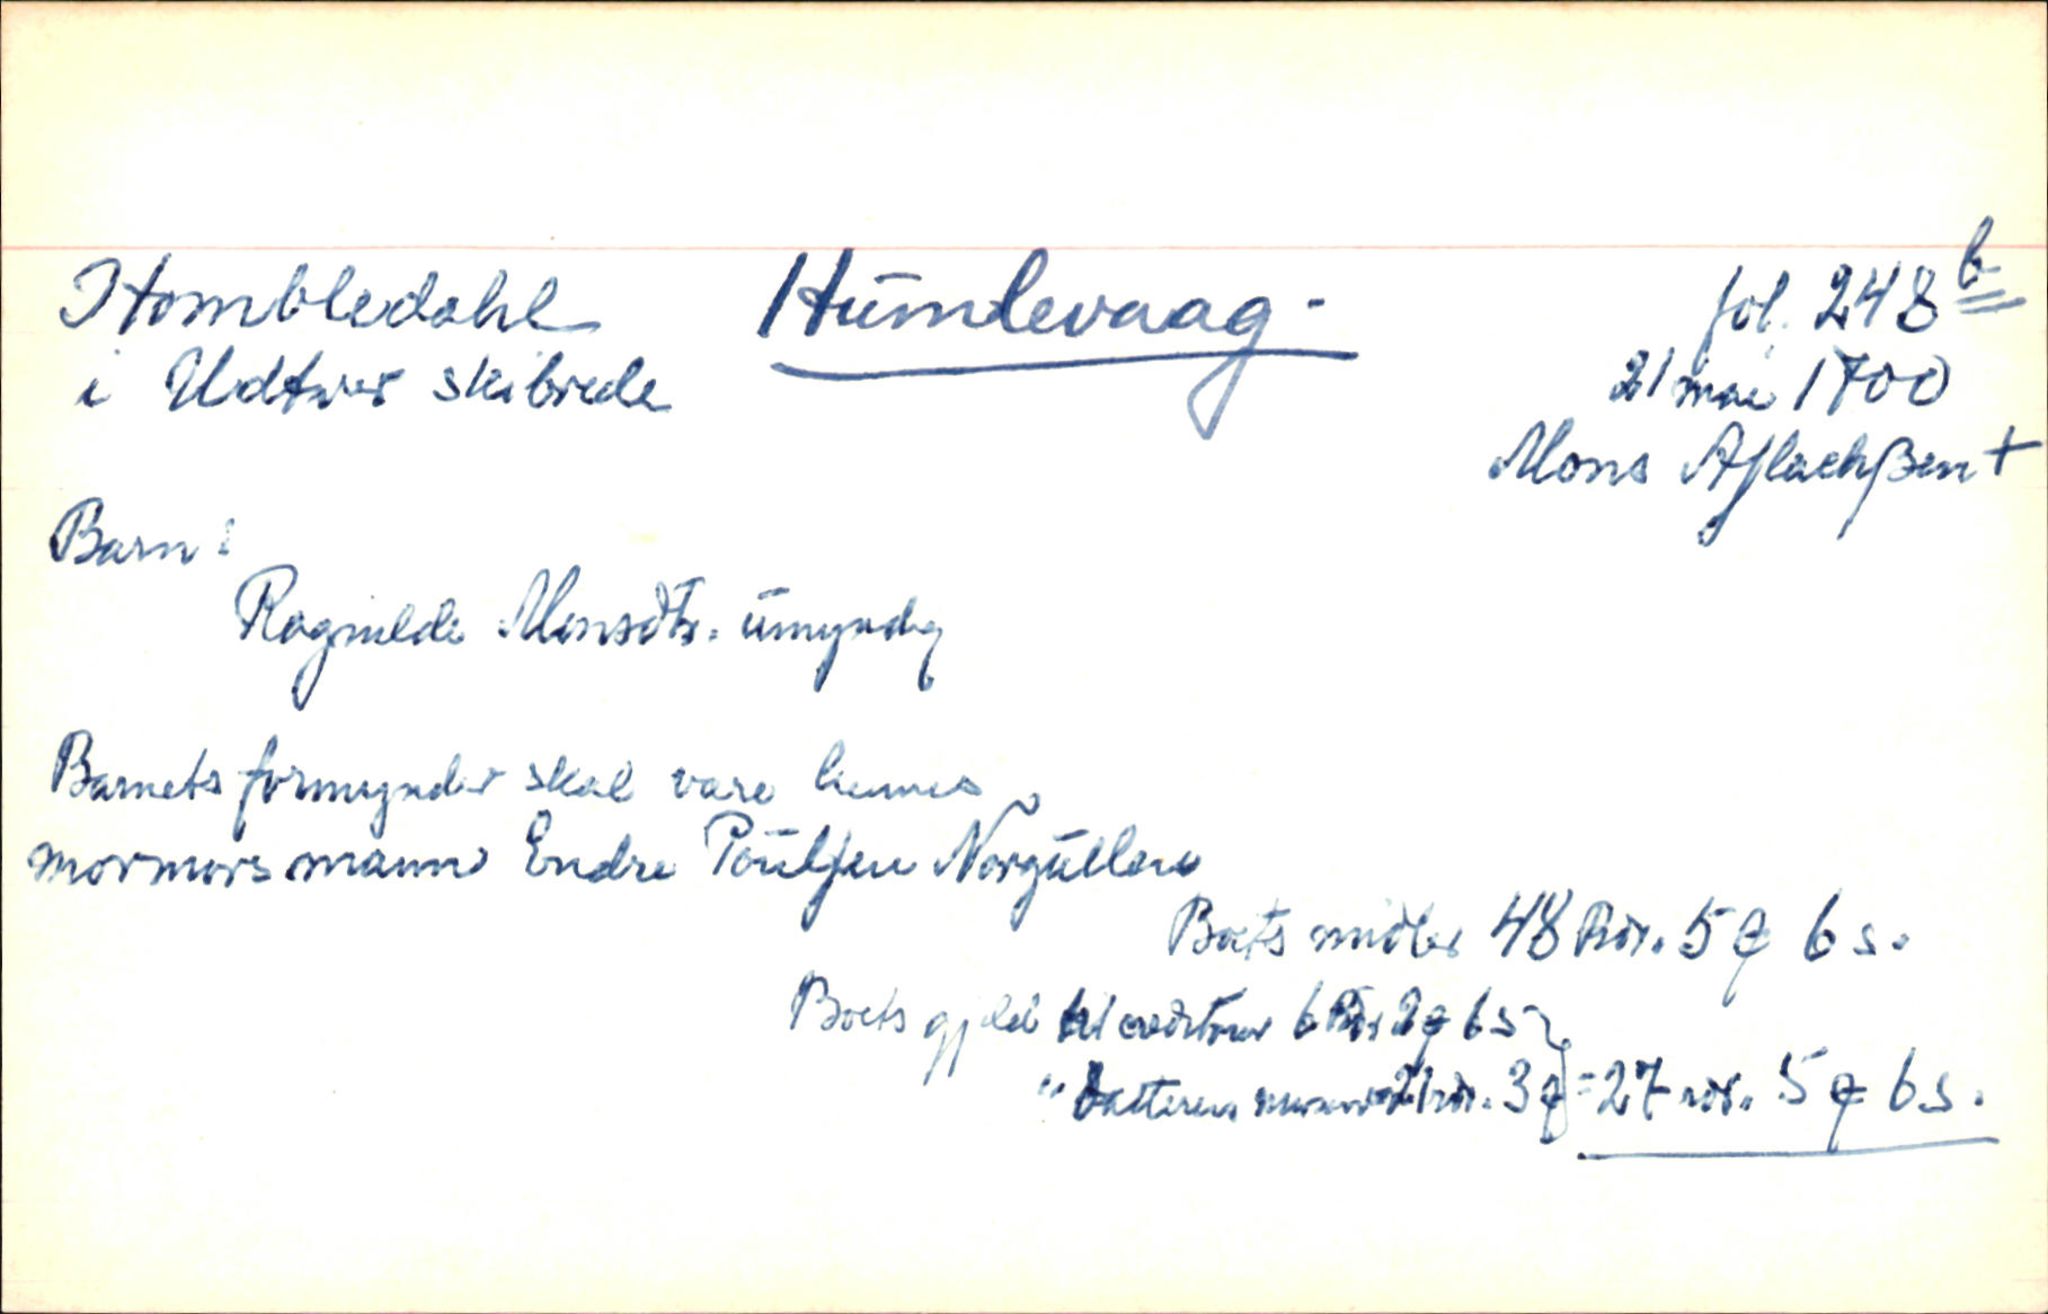 Hombledahl Humlevaag - fol. 248 b
i Udtwer skibrede 21 mai 1700
Mons Aflachßen +
Barn:
Ragnilde Monsdtr. umyndig
Barnets formynder skal være hennes
mormors mann Endre Poulsen Norgullen
Boets midler 48 Rdr. 5 ꝗ 6 s.
Boets gjeld til creditorer 6 Rdr 2 ꝗ 6 s
" datterens 21 rdr. 3 ꝗ = 27 rdr. 5 ꝗ 6 s.